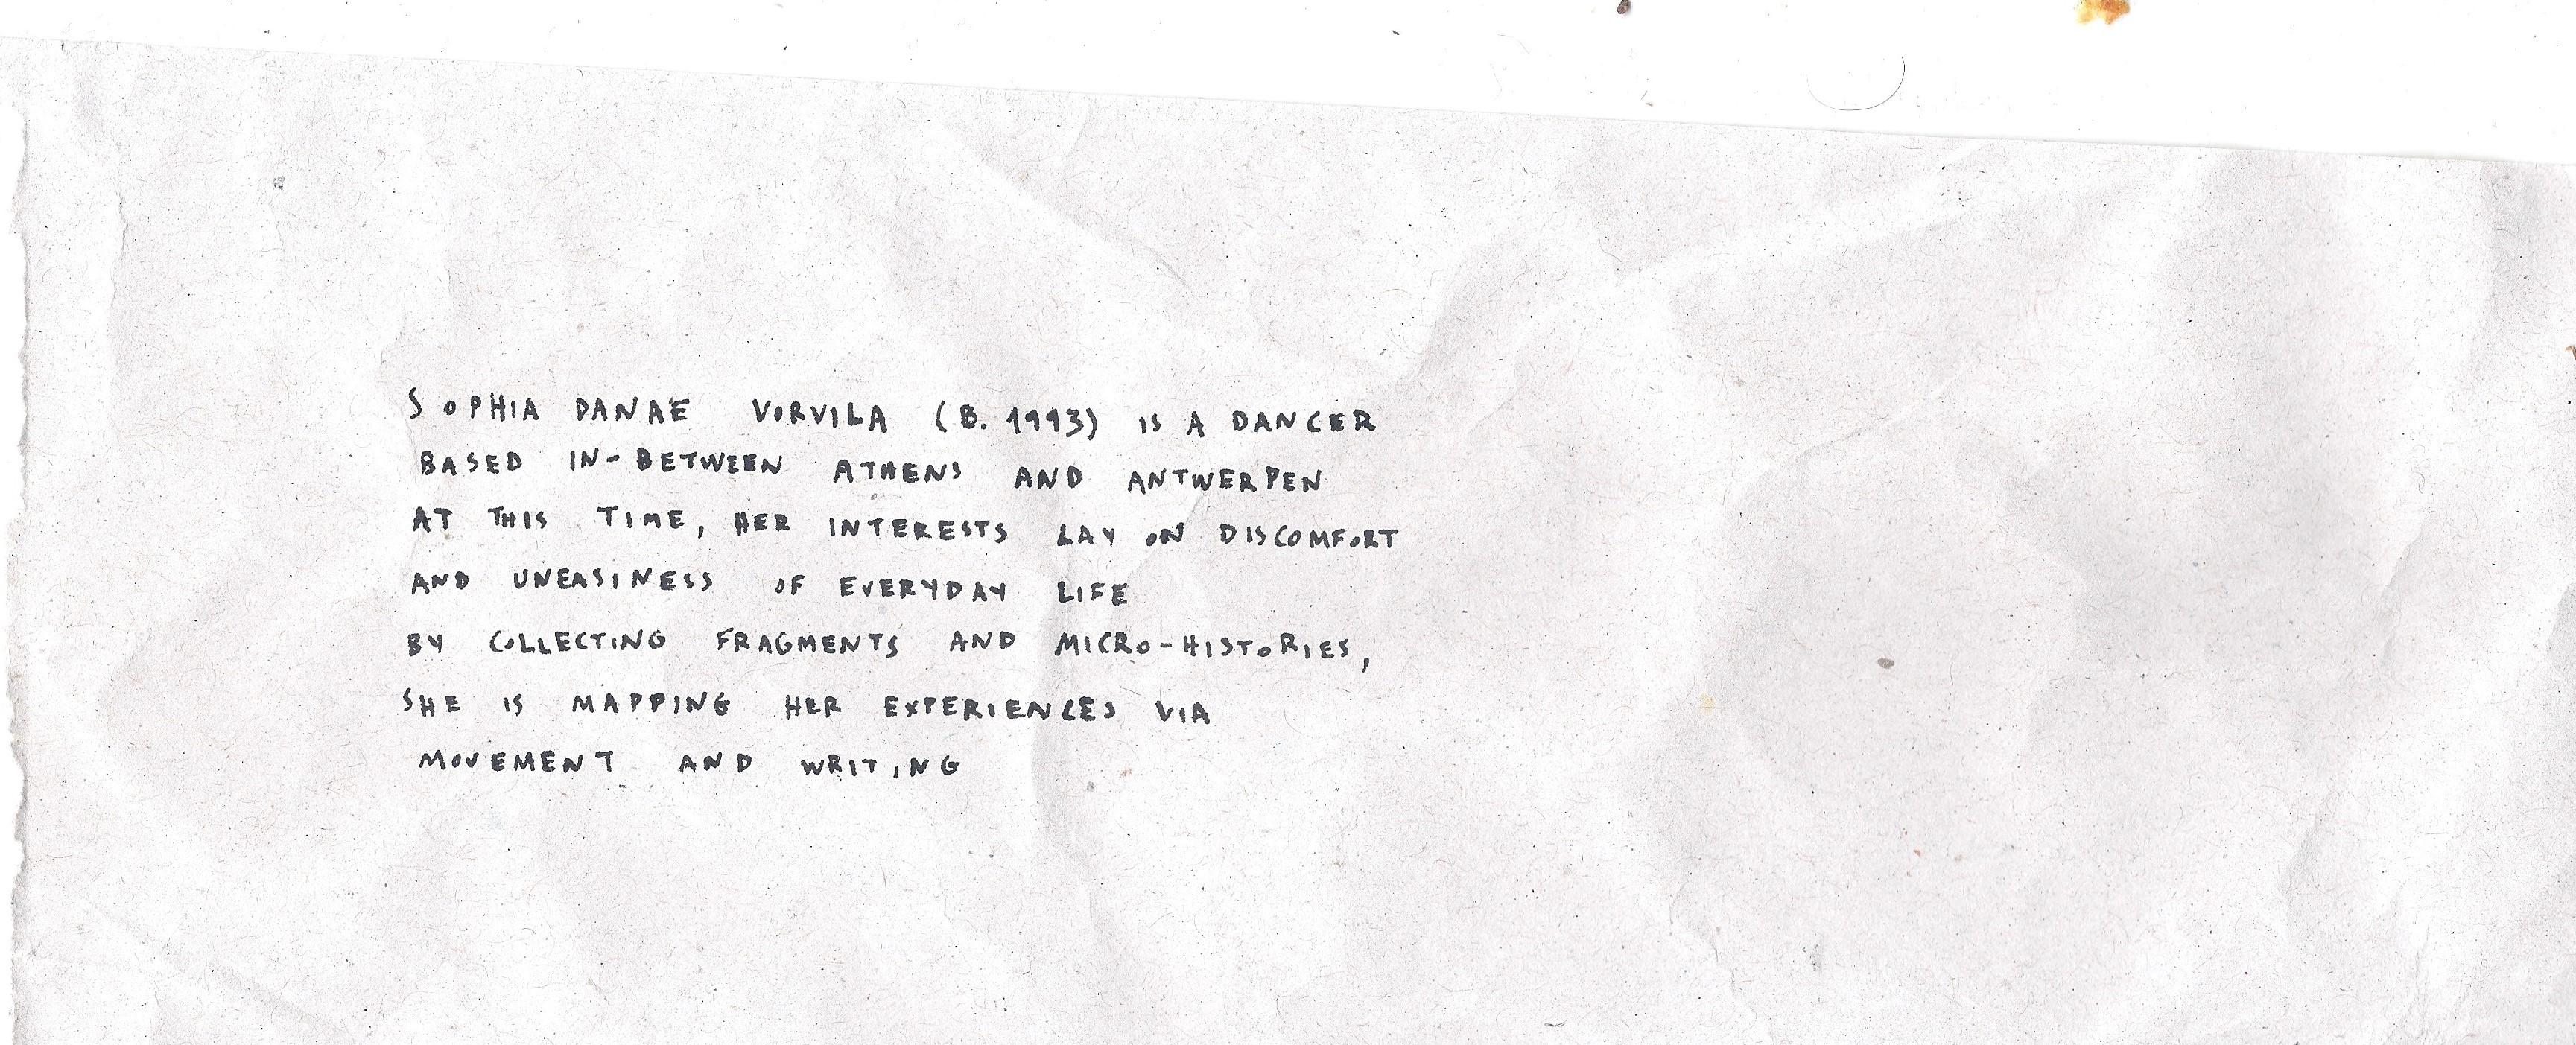 SOPHIA DANAE VORVILA (B. 1993) IS A DANCER
BASED IN-BETWEEN ATHENS AND ANTWERPEN
AT THIS TIME, HER INTERESTS LAY ON DISCOMFORT
AND UNEASINESS OF EVERYDAY LIFE
BY COLLECTING FRAGMENTS AND MICRO-HISTORIES,
SHE IS MAPPING HER EXPERIENCES VIA
MOVEMENT AND WRITING